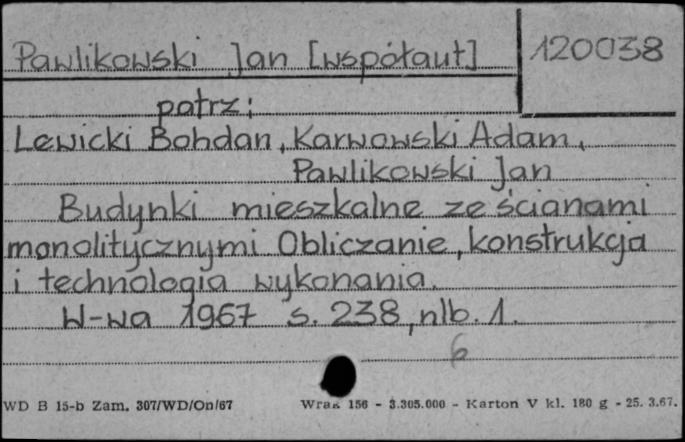 Pawlikowski Jan [współaut] 120038
patrz:
Lewicki Bohdan, Karwowski Adam,
Pawlikowski Jan
Budynki mieszkalne ze ścianami
monolitycznymi Obliczanie, konstrukcja
i technologia wykonania.
W-wa 1967 s. 238, nlb. 1.
6
WD B 15-b Zam. 307/WD/On/67 Wrak 156 - 3.305.000 - Karton V kl. 180 g - 25. 3.67.